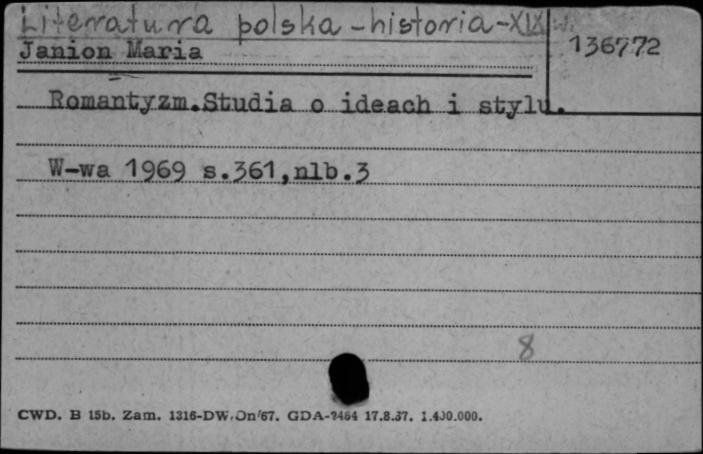 Literatura polska - historia - XIX w.
136772
Janion Maria
Romantyzm.Studia o ideach i stylu.
W-wa 1969 s.361,nlb.3
8
CWD. B 15b. Zam. 1316-DW.On/67. GDA-2464 17.8.67. 1.400.000.